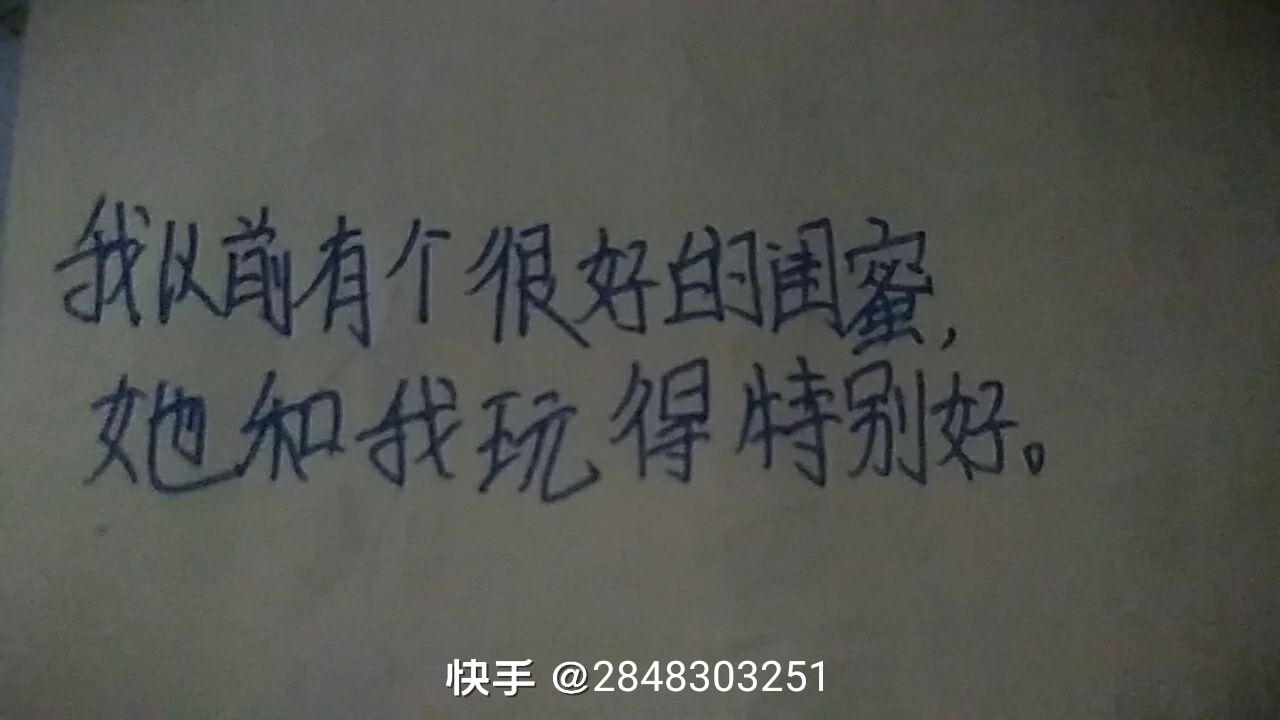 我以前有个很好的闺蜜，
她和我玩得特别好。
快手 @2848303251